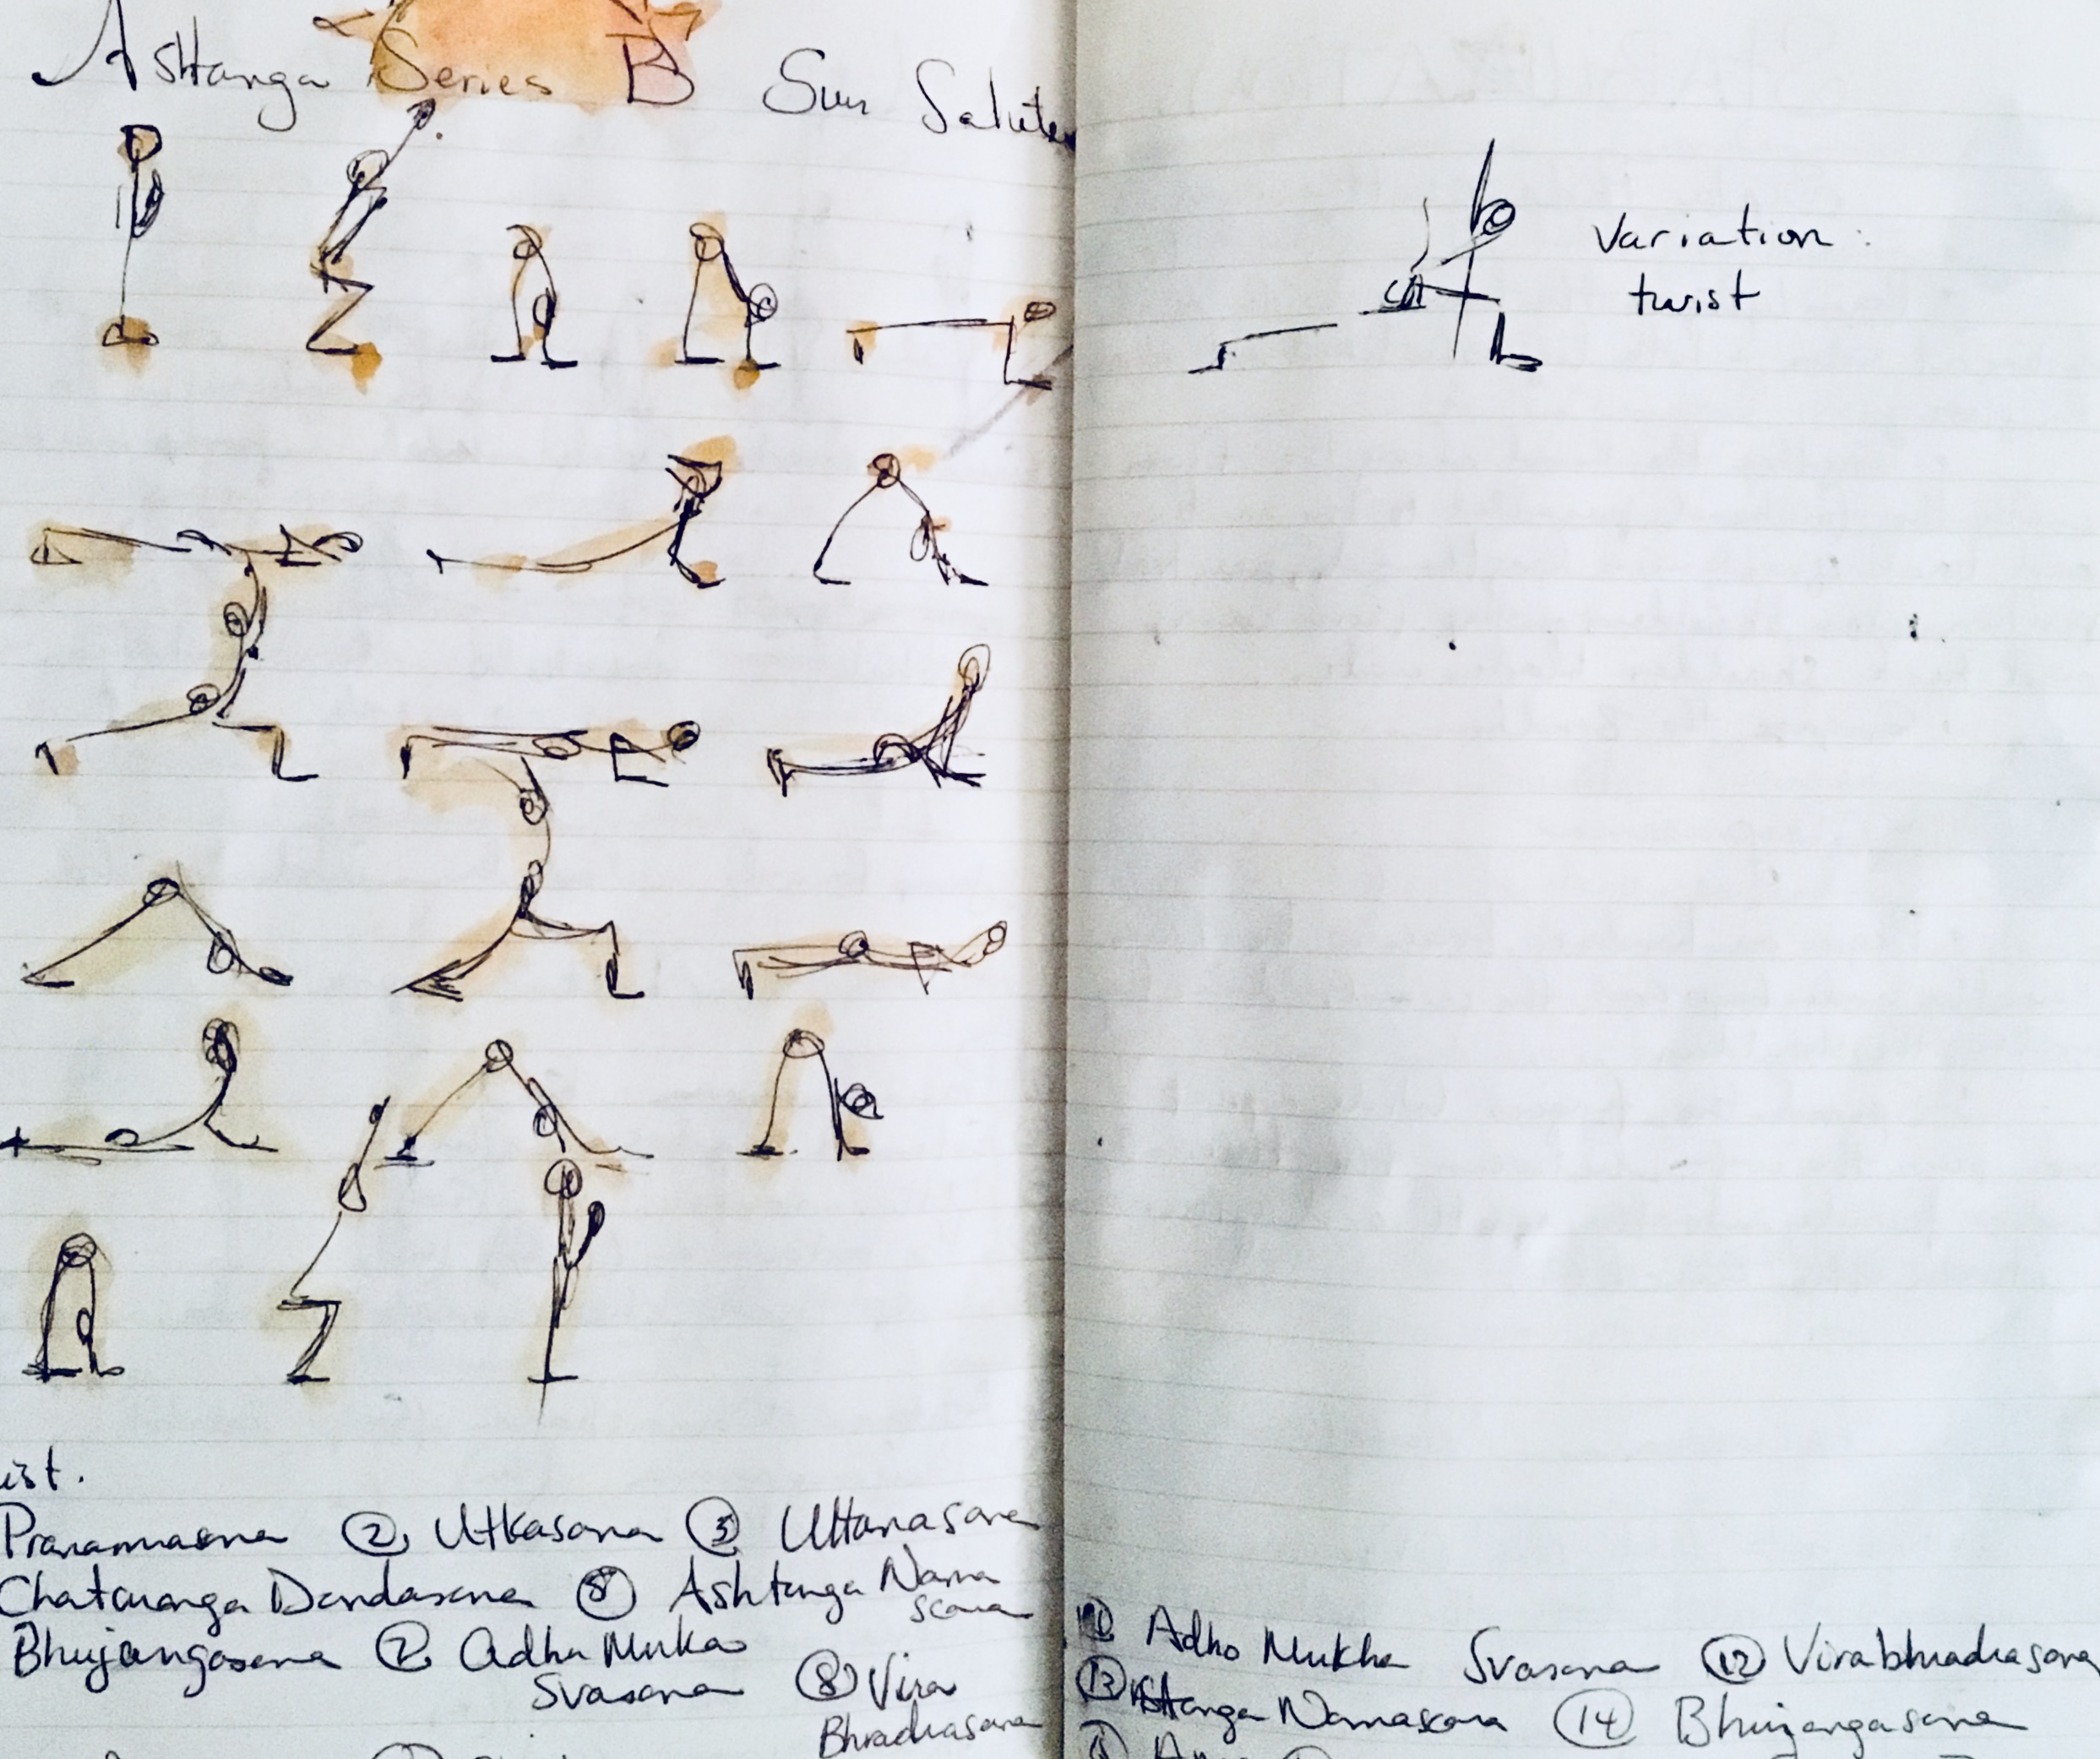 Ashtanga Series B Sun Salute
Variation:
twist
ist.
Pranamasana ② Utkasana ③ Uttanasana
Chaturanga Dandasana ⑤ Ashtanga Nama
scara
Bhujangasana ⑦ Adho Muka
Svasana ⑧ Vira
Bhradrasana
Adho Mukha Svasana ⑫ Virabhradrasana
⑬ Ashtanga Namascara ⑭ Bhujangasana